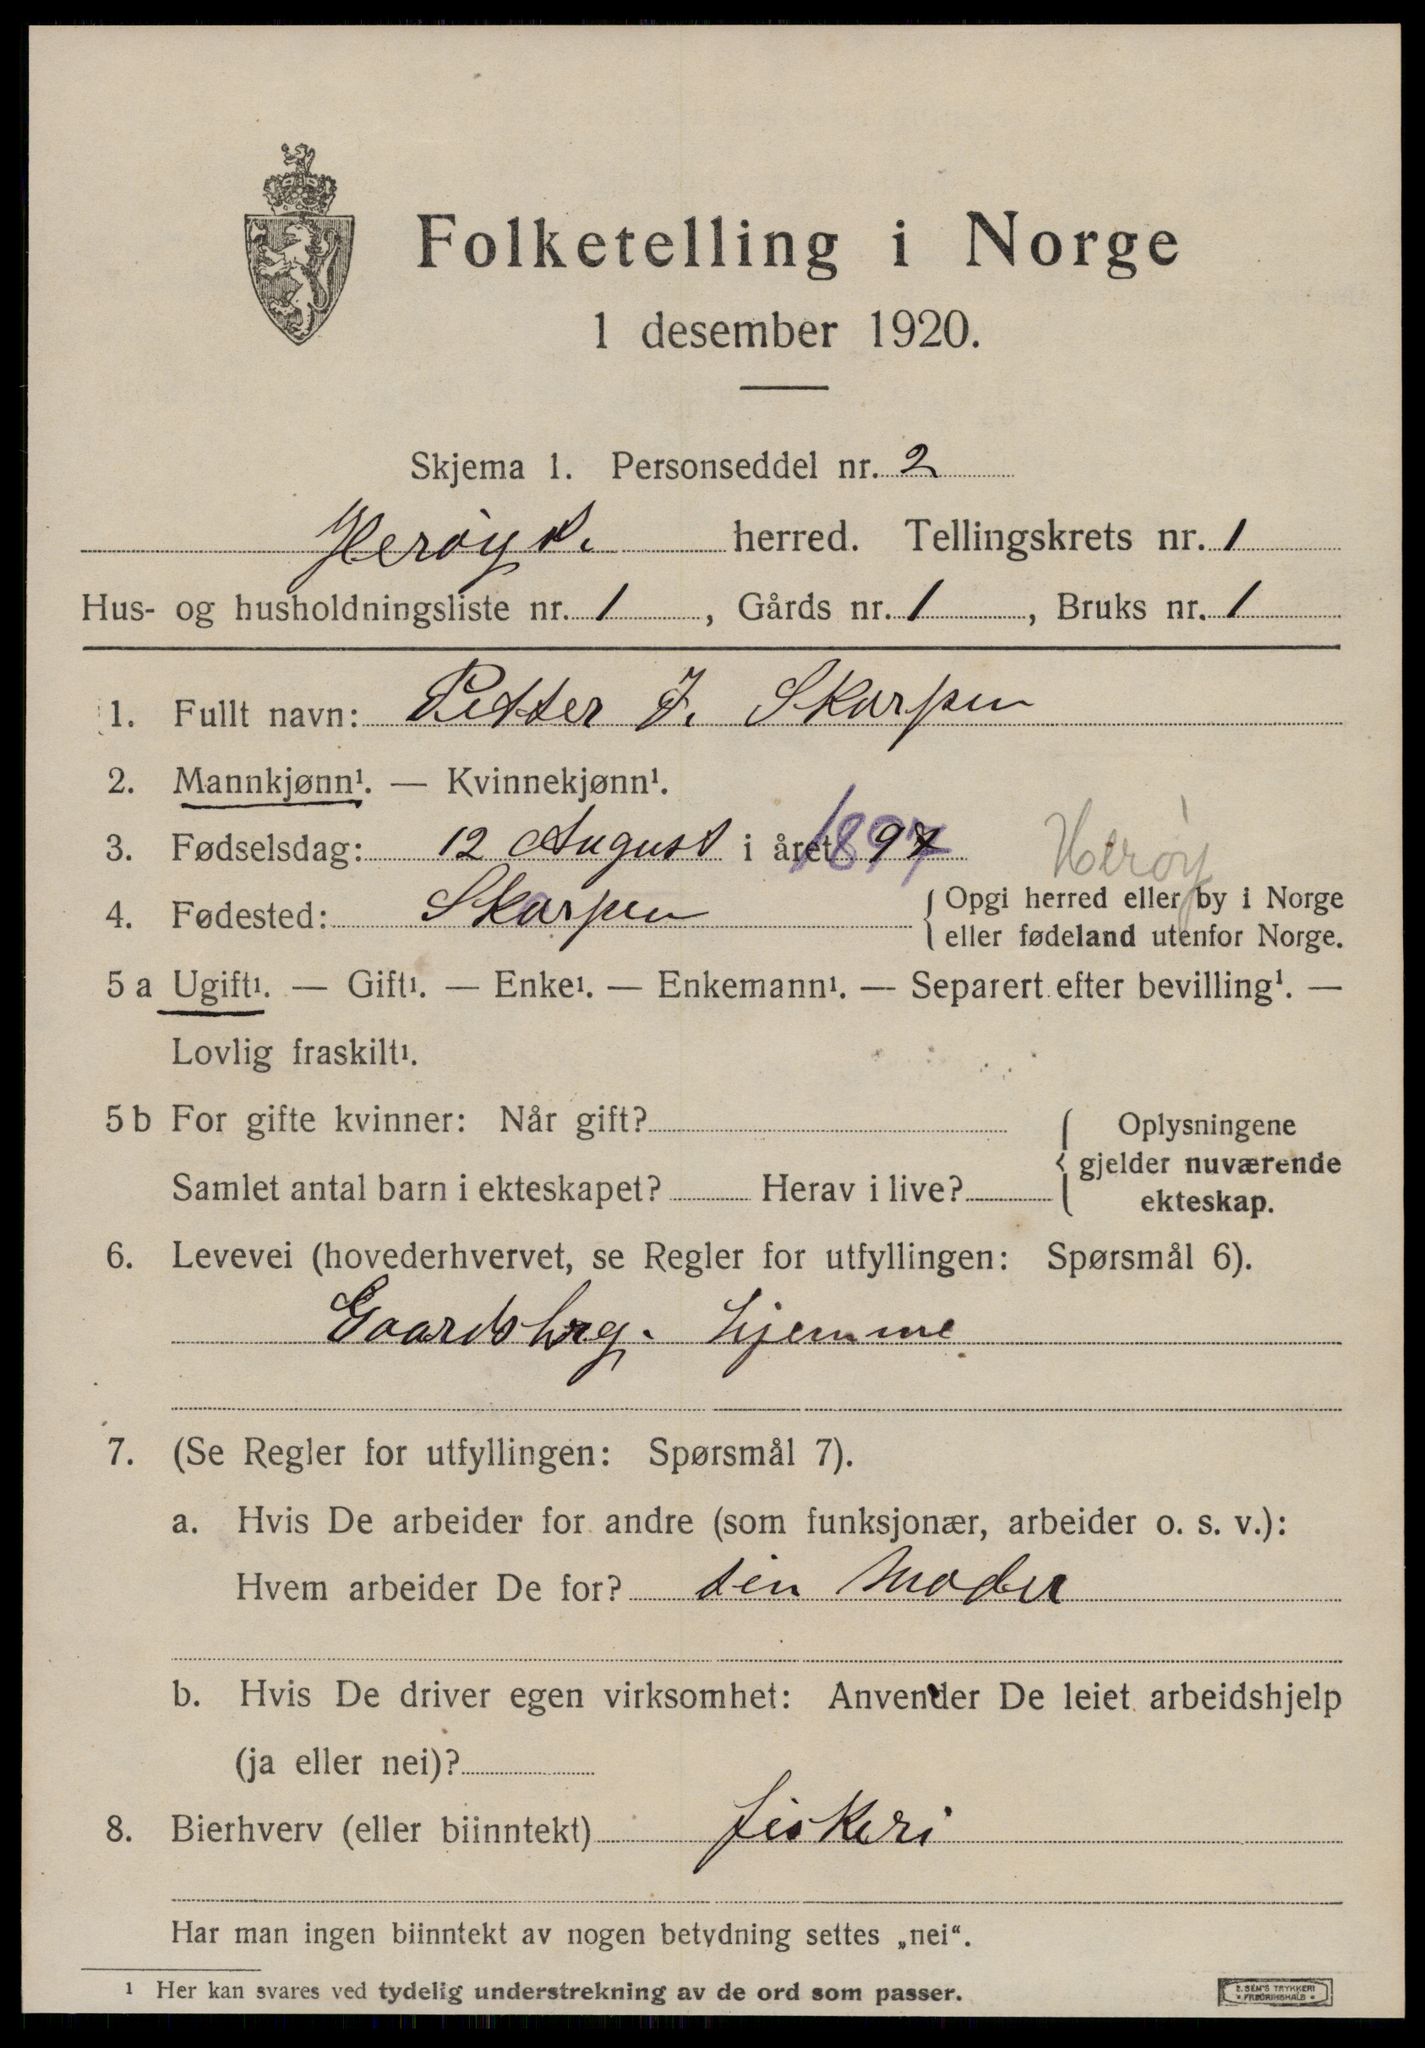 Folketelling i Norge
1 desember 1920.
Skjema 1. Personseddel nr. 2
Herøy s. herred. Tellingskrets nr. 1
Hus- og husholdningsliste nr. 1, Gårds nr. 1, Bruks nr. 1
1. Fullt navn: Petter J. Skarpen
2. Mannkjønn¹. — Kvinnekjønn¹.
3. Fødselsdag: 12 August i året 1897
Herøy
4. Fødested: Skarpen
{ Opgi herred eller by i Norge
eller fødeland utenfor Norge.
5 a Ugift¹. — Gift¹. — Enke¹. — Enkemann¹. — Separert efter bevilling¹. —
Lovlig fraskilt¹.
5 b For gifte kvinner: Når gift?
Samlet antal barn i ekteskapet? Herav i live?
{ Oplysningene
gjelder nuværende
ekteskap.
6. Levevei (hovederhvervet, se Regler for utfyllingen: Spørsmål 6).
hjemme
7. (Se Regler for utfyllingen: Spørsmål 7).
a. Hvis De arbeider for andre (som funksjonær, arbeider o. s. v.):
Hvem arbeider De for? sin Moder
b. Hvis De driver egen virksomhet: Anvender De leiet arbeidshjelp
(ja eller nei)?
8. Bierhverv (eller biinntekt) fiskeri
Har man ingen biinntekt av nogen betydning settes „nei“.
¹ Her kan svares ved tydelig understrekning av de ord som passer.
E. SEM'S TRYKKERI
FREDRIKSHALD